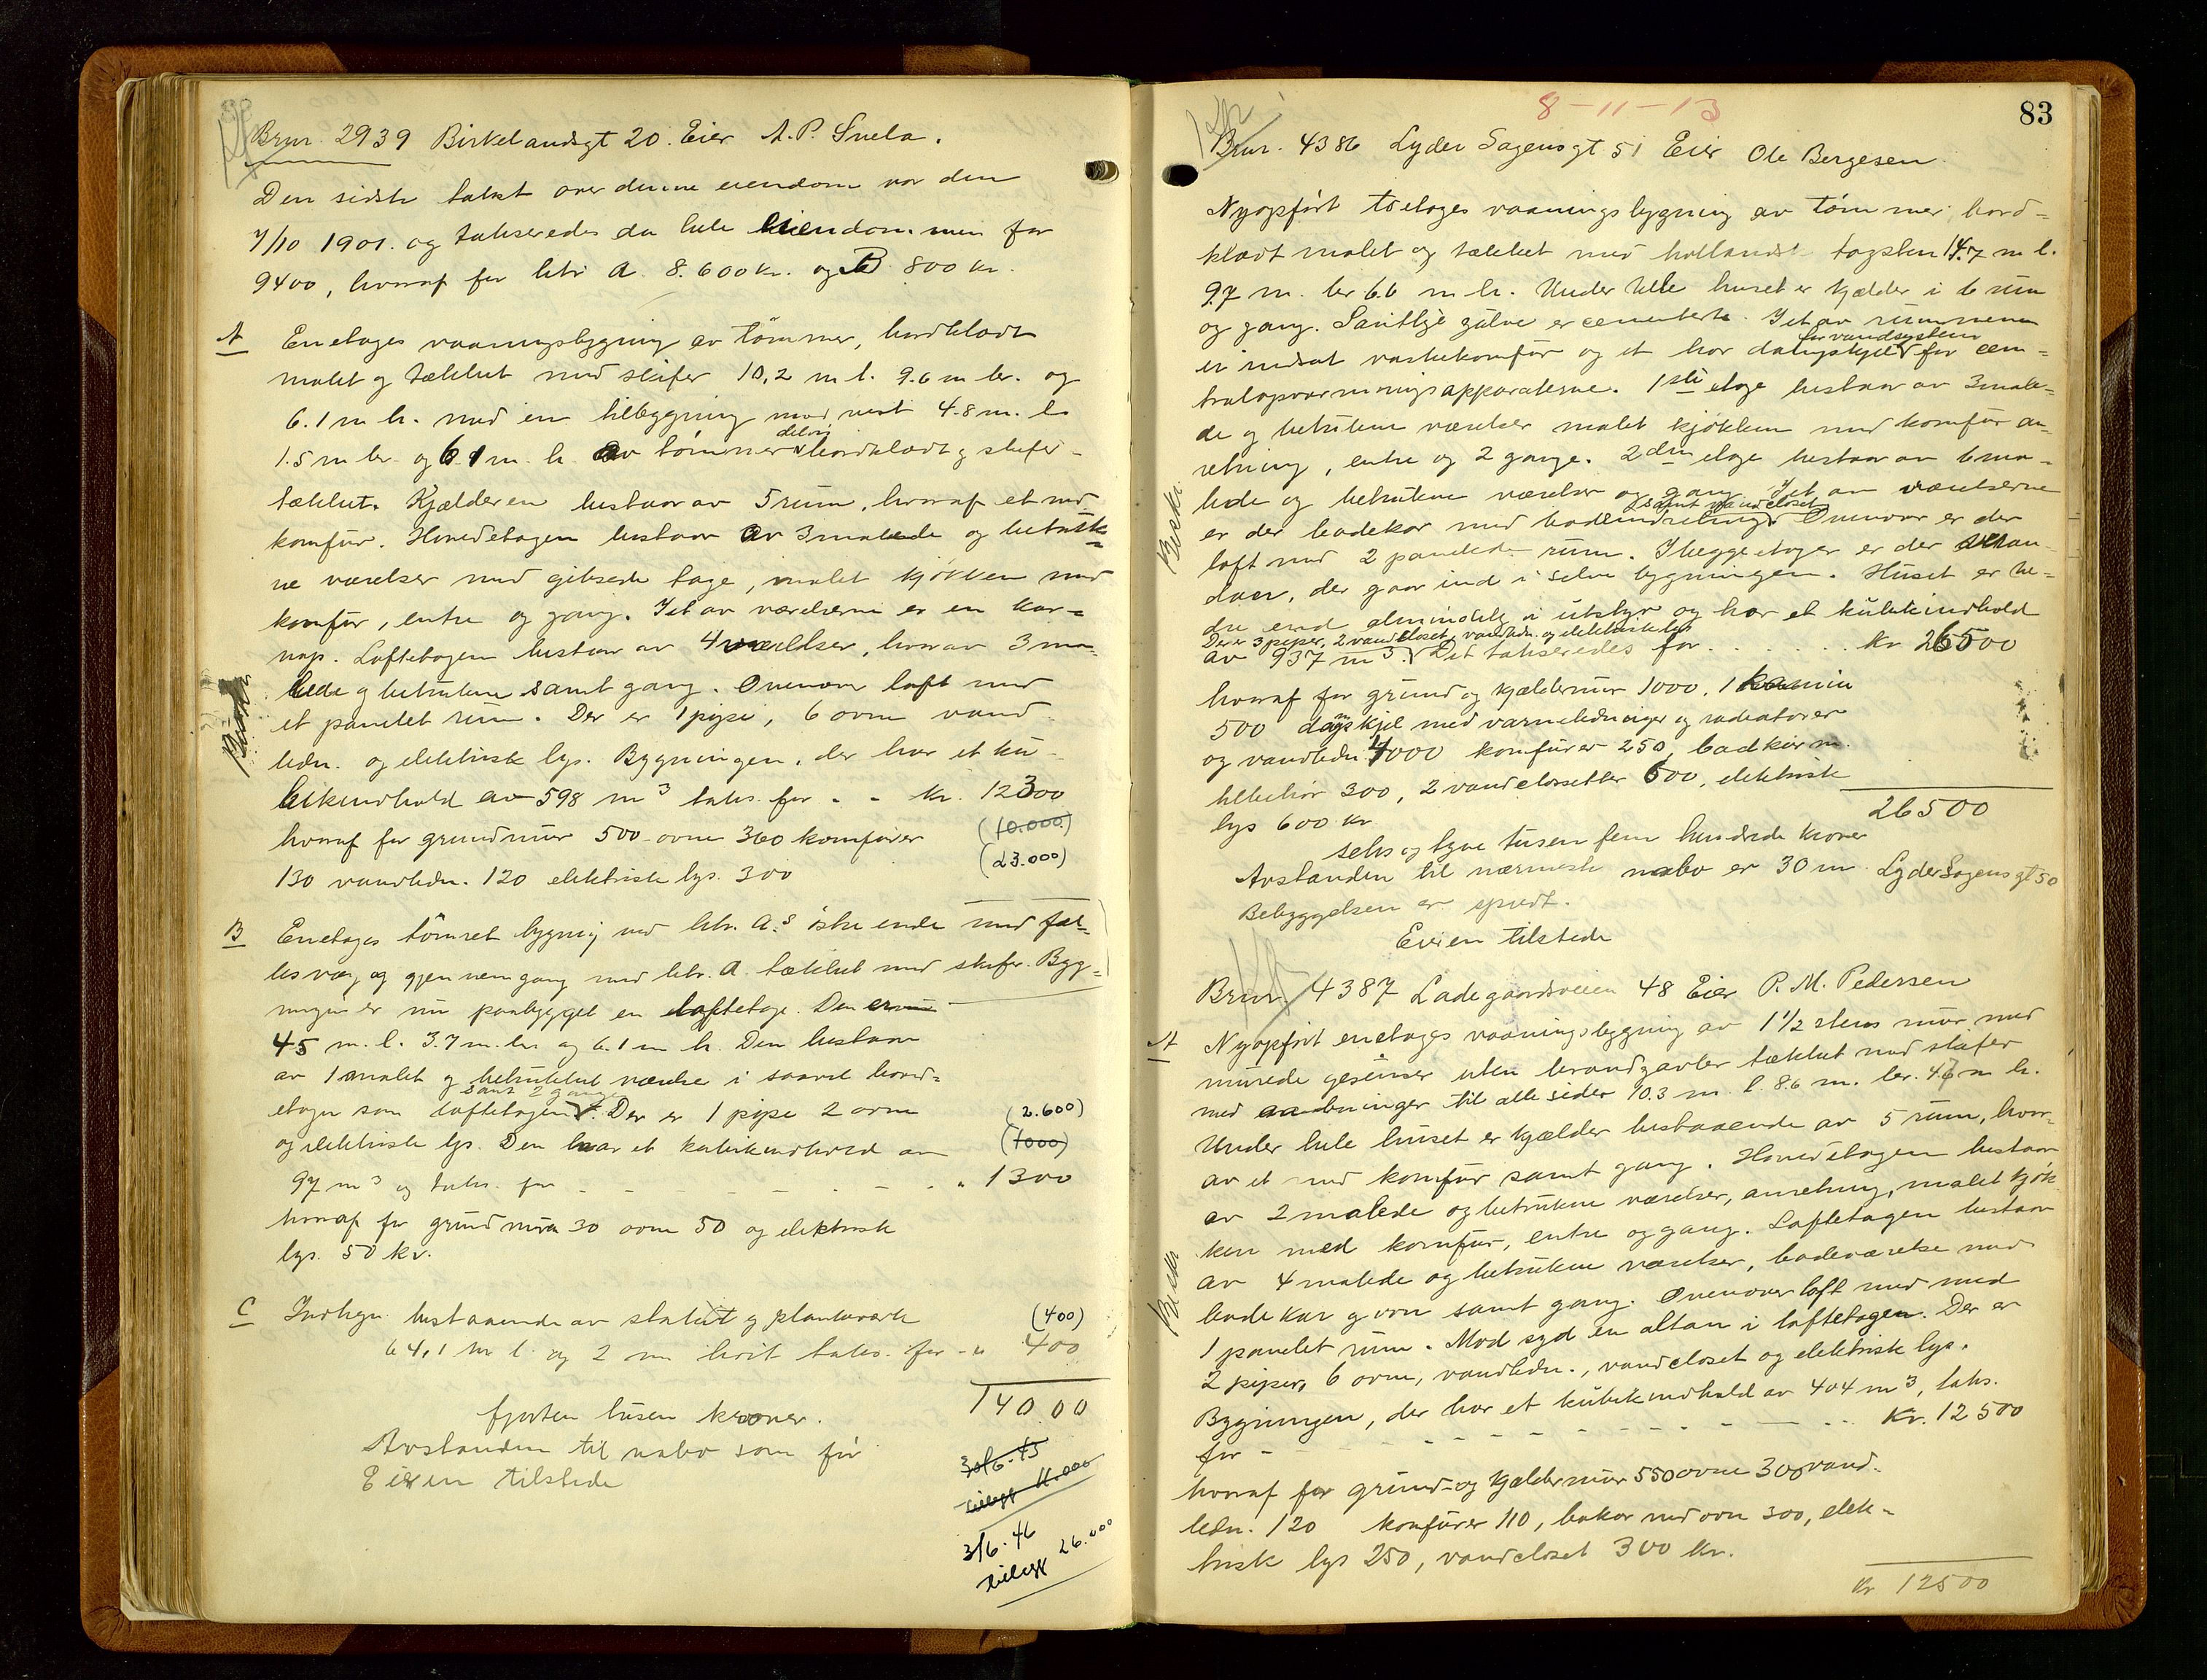 Brnr. 2939 Birkelandsgt 20. Eier A. P. Snela.
Den sidste takst over denne eiendom var den
7/10 1901. og takseredes da hele eiendommen for
9400, hvoraf for litr A. 8.600 kr. og B 800 kr.
A Enetages vaaningsbygning av tømmer, bordklædt
malet og tækket med skifer 10,2 m l. 9.6 m br. og
6.1 m h. med en tilbygning mod vest 4.8 m. l.
1.5 m br. og 6.1 m. h. av tømmer delvis bordklædt og skifer-
tækket. Kjælderen bestaar av 5 rum, hvoraf et med
komfur. Hovedetagen bestaar av 3 malede og betrukk-
ne værelser med gibsede tage, malet kjøkken med
komfur, entre og gang. I et av værelserne er en kar-
nap. Loftetagen bestaar av 4 værelser, hvorav 3 ma-
lede og betrukne samt gang. Ovenover loft med
et panelet rum. Der er 1 pipe, 6 ovne vand-
ledn. og elektrisk lys. Bygningen, der har et ku-
bikindhold av 598 m³ taks. for - - kr. 12300
hvoraf for grundmur 500 ovne 360 komfurer (10.000)
(23.000)
130 vandledn. 120 elektriske lys. 300
B Enetages tømret bygning ved litr. A.s østre ende med fæl-
les væg og gjennemgang med litr. A. tækket med skifer. Byg-
ningen er nu paabygget en loftetage. Den er nu
4.5 m. l. 3.7 m. br og 6.1 m h. Den bestaar
av 1 malet og betrukket værelse i saavel hoved-
etagen som loftetagen samt 2 gange. Der er 1 pipe 2 ovne (2.600)
og elektriske lys. Den har et kubikindhold av (1000)
97 m³ og taks. for - - - - - - - " 1300
hvoraf for grundmur 30 ovne 50 og elektrisk
lys. 50 kr.
C Indhegn. bestaaende av stakit og plankeværk (400)
64,1 m l. og 2 m høit taks. for - " 400
14000
fjorten tusen kroner.
Avstanden til nabo som før
Eieren tilstede
30/6-45
tillegg 11.000
3/6.46
tillegg 26.000
8-11-13
83
Brnr. 4386 Lyder Sagensgt 51 Eier Ole Bergesen
Nyopført toetages vaaningsbygning av tømmer, bord-
klædt malet og tækket med hollandsk tagsten 14.7 m l.
9.7 m. br 6.6 m h. Under hele huset er kjælder i 6 rum
og gang. Samtlige gulve er cementerte. I et av rummene
er indsat vaskekomfur og et har dampkjel for vandsystem for cen-
tralopvarmningsapparaterne. 1ste etage bestaar av 3 male-
de og betrukne værelser malet kjøkken med komfur an-
retning, entre og 2 gange. 2den etage bestaar av 6 ma-
lede og betrukne værelser og gang. I et av værelserne
er der badekar med badeindretning samt vandcloset Ovenover er der
loft med 2 panelede rum. I begge etager er der veran-
daer, der gaar ind i selve bygningen. Huset er be-
dre end almindelig i utstyr og har et kubikindhold
Der er 3 piper, 2 vandcloset, vandledn. og elektrisk lys
av 937 m³. Det takseredes for . . . . . kr 26500
hvoraf for grund og kjældermur 1000, 1 kamin
500 dampkjel med varmeledninger og radiatorer
og vandledn 4000 komfurer 250, badkar m.
tilbehør 300, 2 vandclosetter 600, elektrisk
lys 600 kr.
26500
seks og tyve tusen fem hundrede kroner
Avstanden til nærmeste nabo er 30 m Lyder Sagens gt 50
Bebyggelsen er spredt.
Eieren tilstede
Brnr. 4387 Ladegaardsveien 48 Eier P. M. Pedersen
A Nyopført enetages vaaningsbygning av 1 1/2 stens mur med
murede gesimser uten brandgavler tækket med skifer
med aabninger til alle sider 10.3 m l. 8.6 m. br. 4.6 m h.
Under hele huset er kjælder bestaaende av 5 rum, hvor-
av et med komfur samt gang. Hovedetagen bestaar
av 2 malede og betrukne værelser, anretning, malet kjøk-
ken med komfur, entre og gang. Loftetagen bestaar
av 4 malede og betrukne værelser, badeværelse med
badekar og ovn samt gang. Ovenover loft med med
1 panelet rum. Mod syd en altan i loftetagen. Der er
2 piper, 6 ovne, vandledn., vandcloset og elektriske lys.
Bygningen, der har et kubikindhold av 404 m³, taks.
for - - - - - - - - kr. 12500
hvoraf for grund- og kjældermur 550 ovne 300 vand-
ledn. 120 komfurer 110, bakar med ovn 300, elek-
trisk lys 250, vandcloset 300 kr.
kr 12500